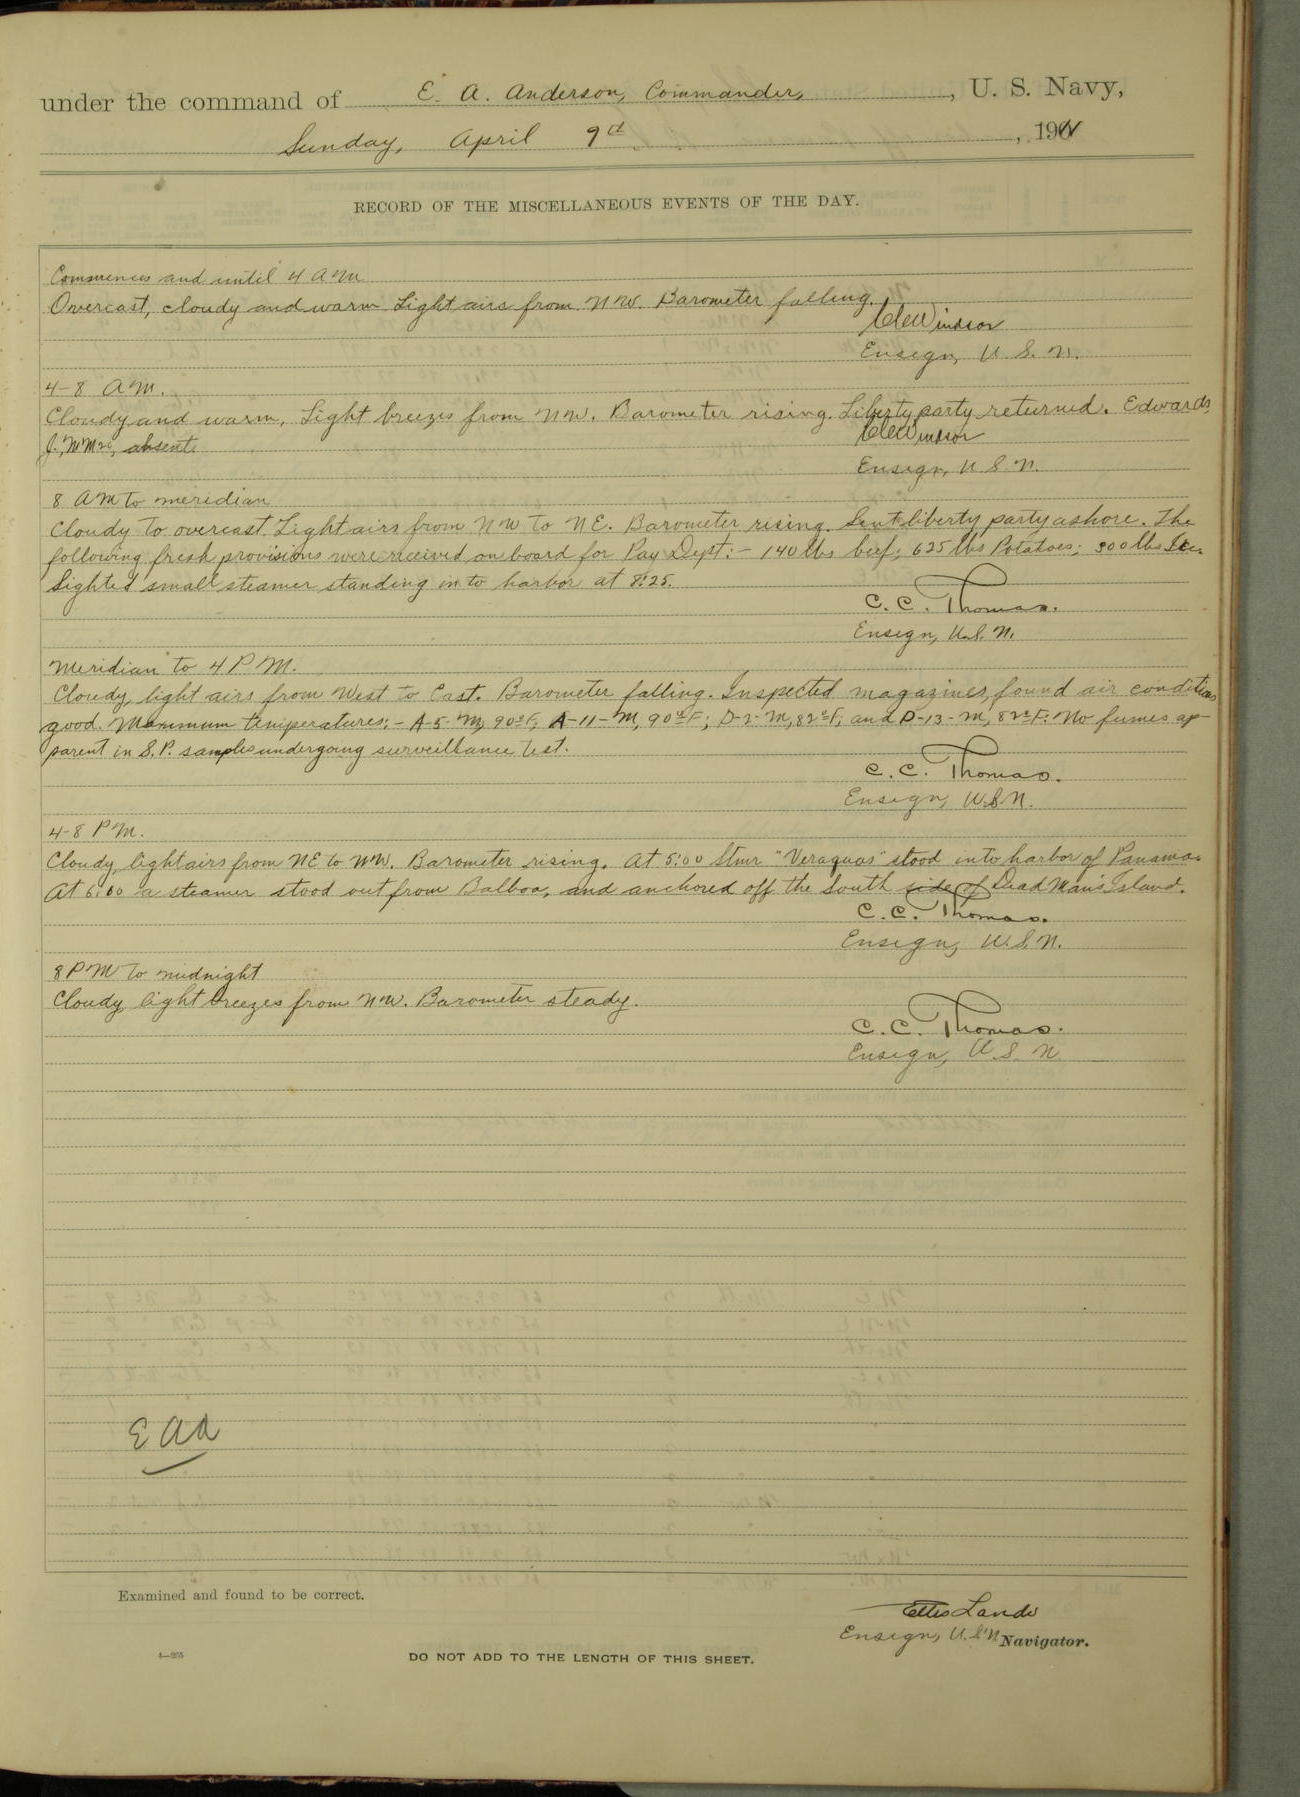 under the command of E. A. Anderson, Commander, , U. S. Navy,
Sunday, April 9th , 1911
RECORD OF THE MISCELLANEOUS EVENTS OF THE DAY.
Commences and until 4 AM
Overcast, cloudy and warm Light airs from NW. Barometer falling.
Windsor
Ensign, U. S. N.
4-8 AM.
Cloudy and warm, Light breezes from NW. Barometer rising. Liberty party returned. Edwards,
J., absent.
Windsor
Ensign, U S N.
8 AM to meridian
Cloudy to overcast. Light airs from NW to NE. Barometer rising. Sent liberty party ashore. The
following fresh provisions were received on board for Pay Dept:- 140 lbs beef; 625 lbs Potatoes; 300 lbs Ice.
Sighted small steamer standing in to harbor at 8:25.
C. C. Thomas.
Ensign, U.S. N.
Meridian to 4 PM.
Cloudy, light airs from West to East. Barometer falling. Inspected magazines, found air conditions
good. Maximum temperatures:- A-5-M, 90°F; A-11-M, 90°F; D-2-M, 82°F; and D-13-M, 82°F. No fumes ap-
parent in S.P. samples undergoing surveillance test.
C. C. Thomas.
Ensign, U.S.N.
4-8 PM.
Cloudy, light airs from NE to NW. Barometer rising. At 5:00 Stmr "Veraguas" stood into harbor of Panama.
At 6:00 a steamer stood out from Balboa, and anchored off the South side of Dead Man's Island.
C. C. Thomas.
Ensign, U.S.N.
8 PM to midnight
Cloudy light breezes from NW. Barometer steady.
C. C. Thomas.
Ensign, U. S. N
E A A
Examined and found to be correct.
Ellis Lando
Ensign, U.S.N Navigator.
DO NOT ADD TO THE LENGTH OF THIS SHEET.